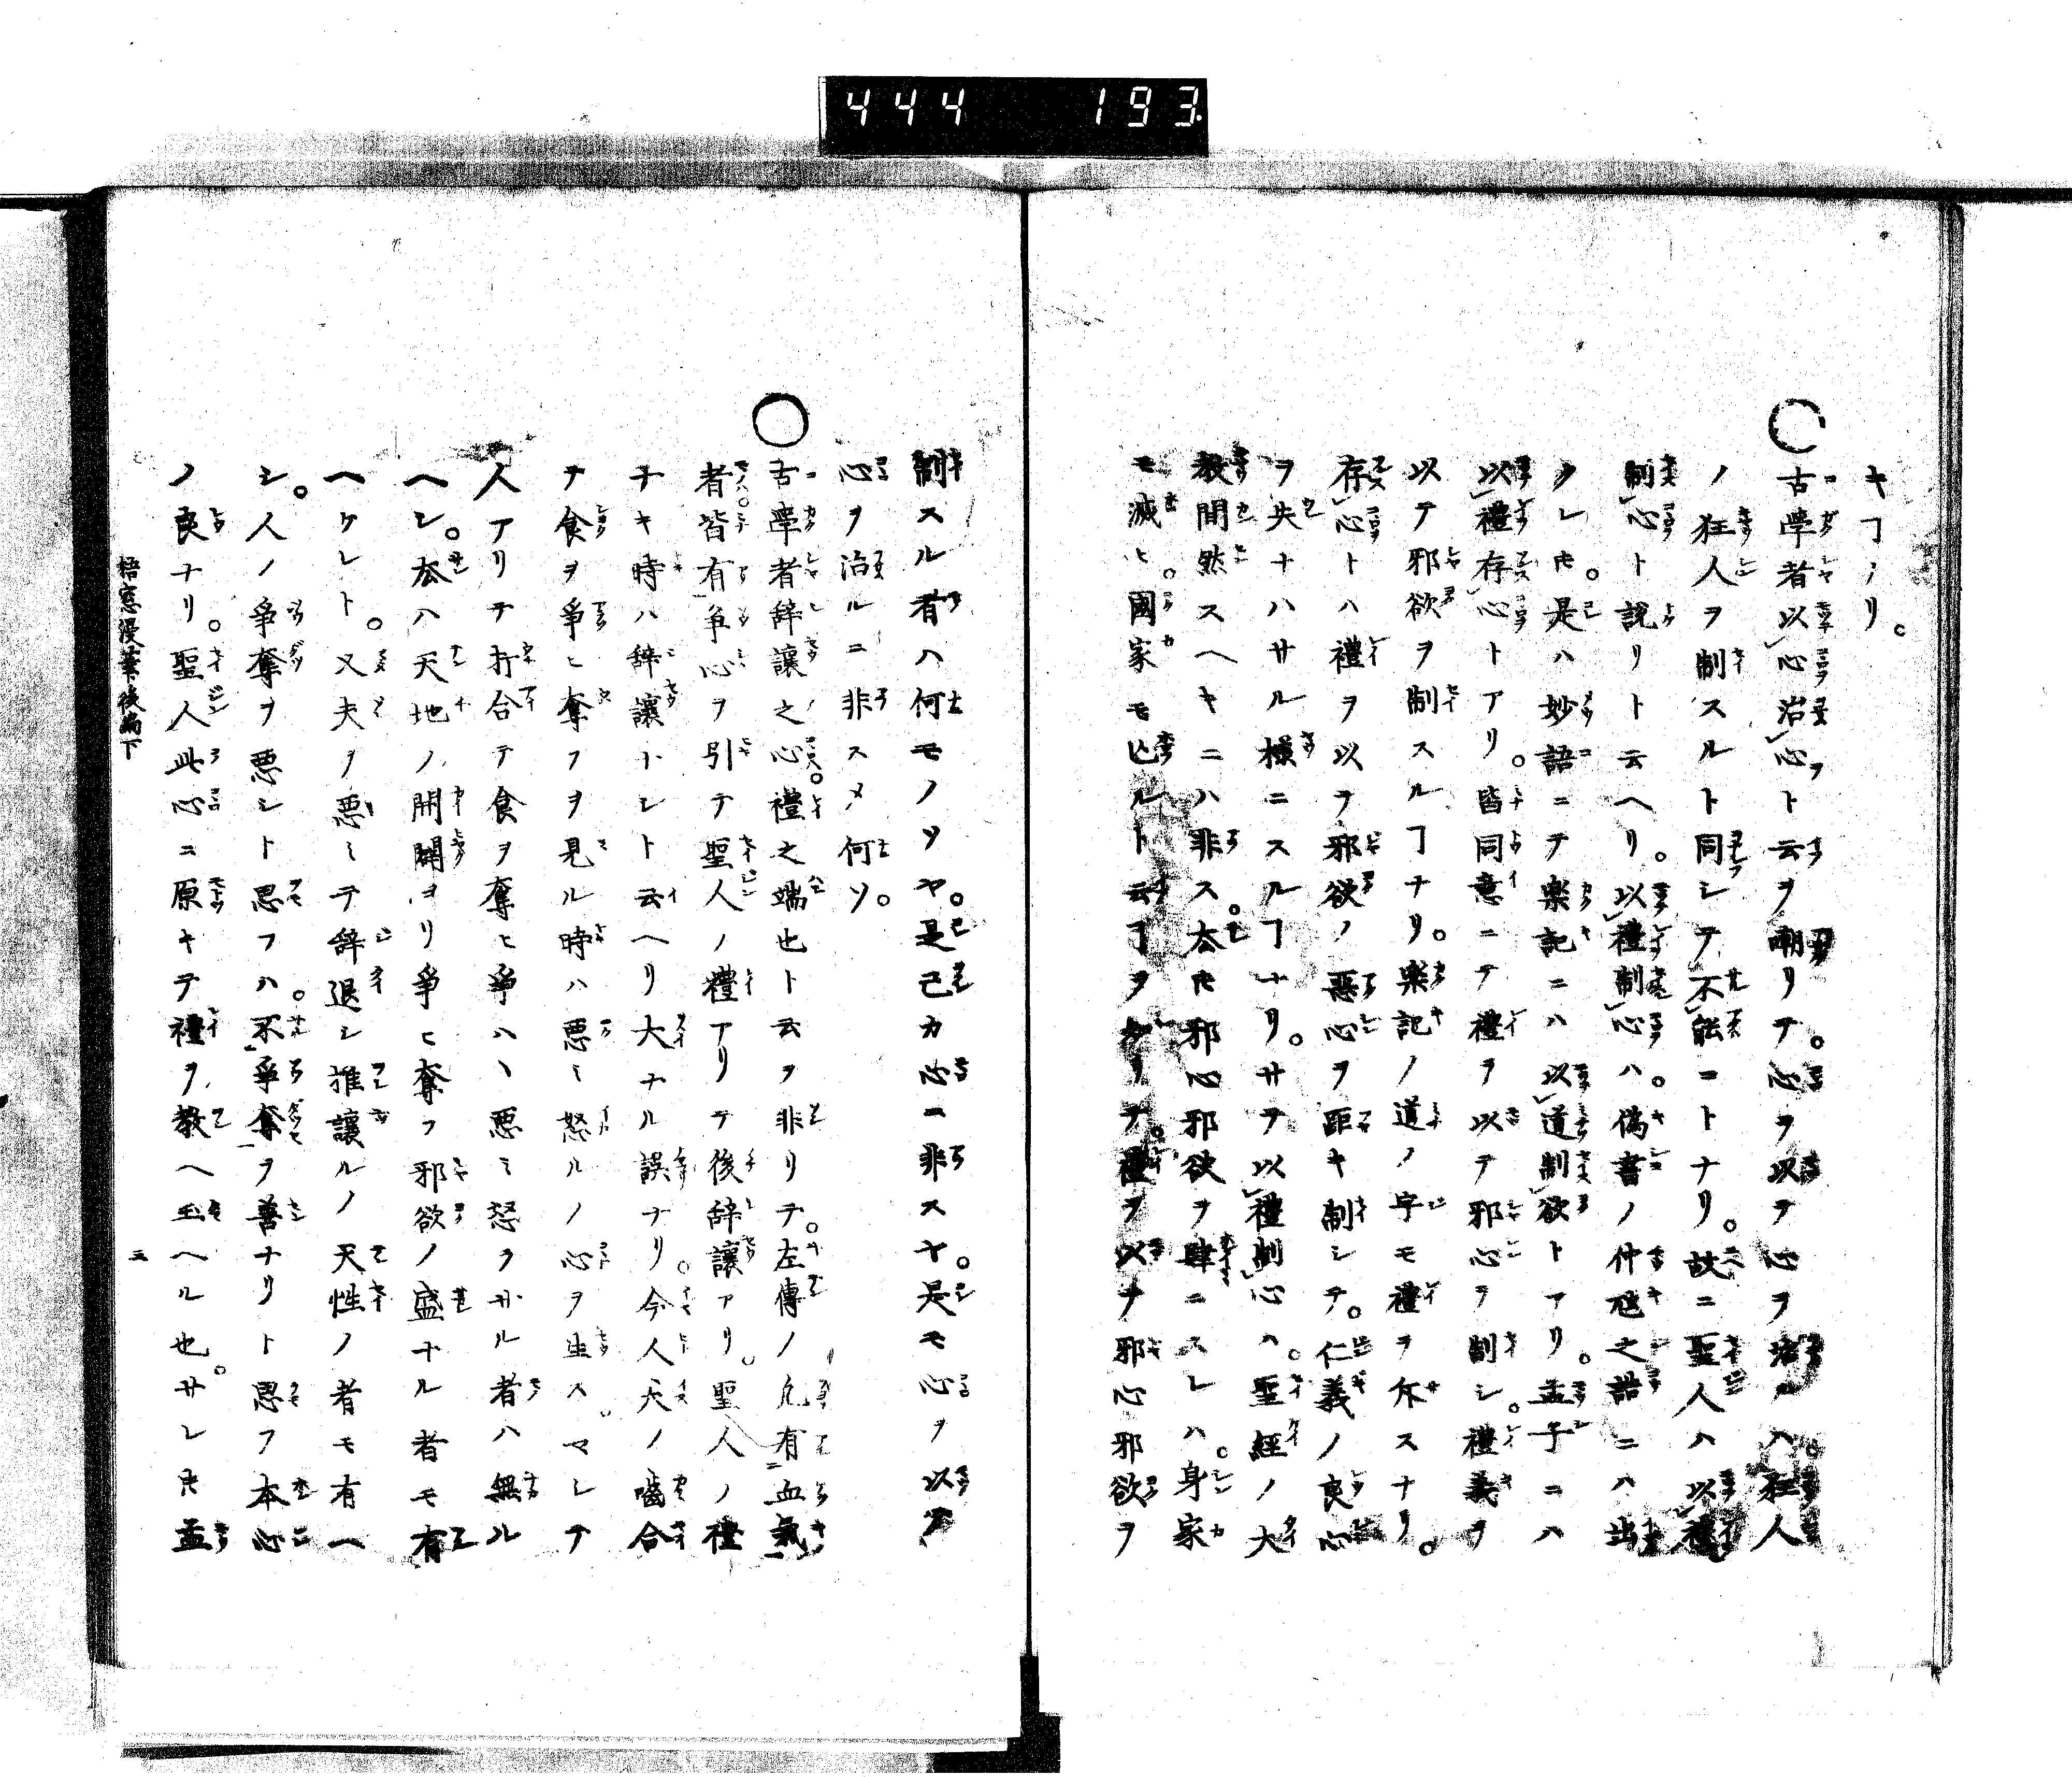 444 193
キヿナリ。
○古學者以心治心ト云ヲ嘲リテ。心ヲ以テ心ヲ治ルハ。狂人
ノ狂人ヲ制スルト同シテ不能コトナリ。故ニ聖人ハ以禮
制心ト説リト云ヘリ。以禮制心ハ。偽書ノ仲虺之誥ニハ出
タレ𪜈。是ハ妙語ニテ楽記ニハ以道制欲トアリ。孟子ニハ
以禮存心トアリ。皆同意ニテ禮ヲ以テ邪心ヲ制シ。禮義ヲ
以テ邪欲ヲ制スルヿナリ。楽記ノ道ノ字モ禮ヲ斥スナリ。
存心トハ禮ヲ以テ邪欲ノ惡心ヲ距キ制シテ。仁義ノ良心
ヲ失ナハサル様ニスルヿナリ。サテ以禮制心ハ。聖經ノ大
教間然スヘキニハ非ス。夲𪜈邪心邪欲ヲ肆ニスレハ。身家
モ滅ヒ。國家モ亡ルト云ヿヲ知リテ。禮ヲ以テ邪心邪欲ヲ
制スル者ハ何モノソヤ。是己カ心ニ非スヤ。是モ心ヲ以テ
心ヲ治ルニ非スメ何ソ。
○古學者辞讓之心。禮之端也ト云ヲ非リテ。左傳ノ凡有血氣
者。皆有争心ヲ引テ聖人ノ禮アリテ後辞讓アリ。聖人ノ禮
ナキ時ハ辞讓ナシト云ヘリ大ナル誤ナリ。今人犬ノ噛合
テ食ヲ爭ヒ奪フヲ見ル時ハ悪ミ怒ルノ心ヲ生ス。マシテ
人アリテ打合テ食ヲ奪ヒ爭ハヽ悪ミ怒ラサル者ハ無ル
ヘシ。夲ハ天地ノ開闢ヨリ爭ヒ奪フ邪欲ノ盛ナル者モ有
ヘケレト。又夫ヲ悪ミテ辞退シ推讓ルノ天性ノ者モ有ヘ
シ。人ノ爭奪ヲ悪シト思フハ。不爭奪ヲ善ナリト思フ本心
ノ良ナリ。聖人此心ニ原キテ禮ヲ教ヘ玉ヘル也。サレ𪜈孟
梧窓漫筆後編下 三